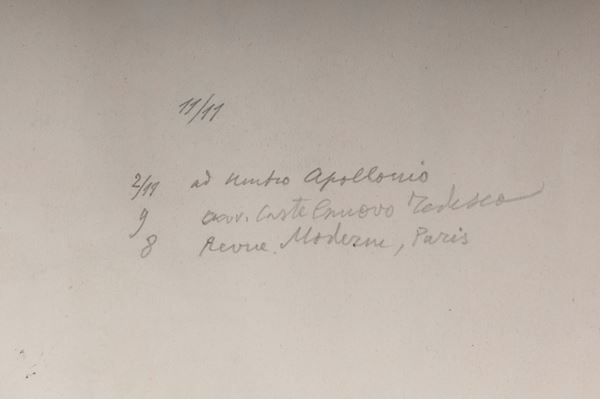 11/11
2/11 ad Umbro Apollonio
9 avv. Castelnuovo Tedesco
8 Revue Moderne, Paris